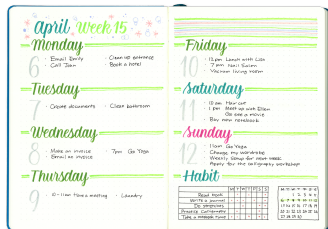 April Week 15
Monday
6
• Email Emily
• Call Jean
• Clean up entrance
• Book a hotel
Tuesday
7
• Update documents
• Clean bathroom
Wednesday
8
• Make an invoice
• Email an invoice
• 7pm Go Yoga
Thursday
9
• 10-11am Have a meeting
• Laundry
Friday
10
• 12pm Lunch with Lisa
• 7pm Nail Salon
• Vacuum living room
Saturday
11
• 10am Hair cut
• 1pm Meet up with Ellen
Go see a movie
• Buy new notebook
Sunday
12
• 11am Go Yoga
• Change my wardrobe
• Weekly Setup for next week
• Apply for the calligraphy workshop
Habit
M T W T F S S
Read book
Write a journal
Do stretches
Practice Calligraphy
Take a 15-minute